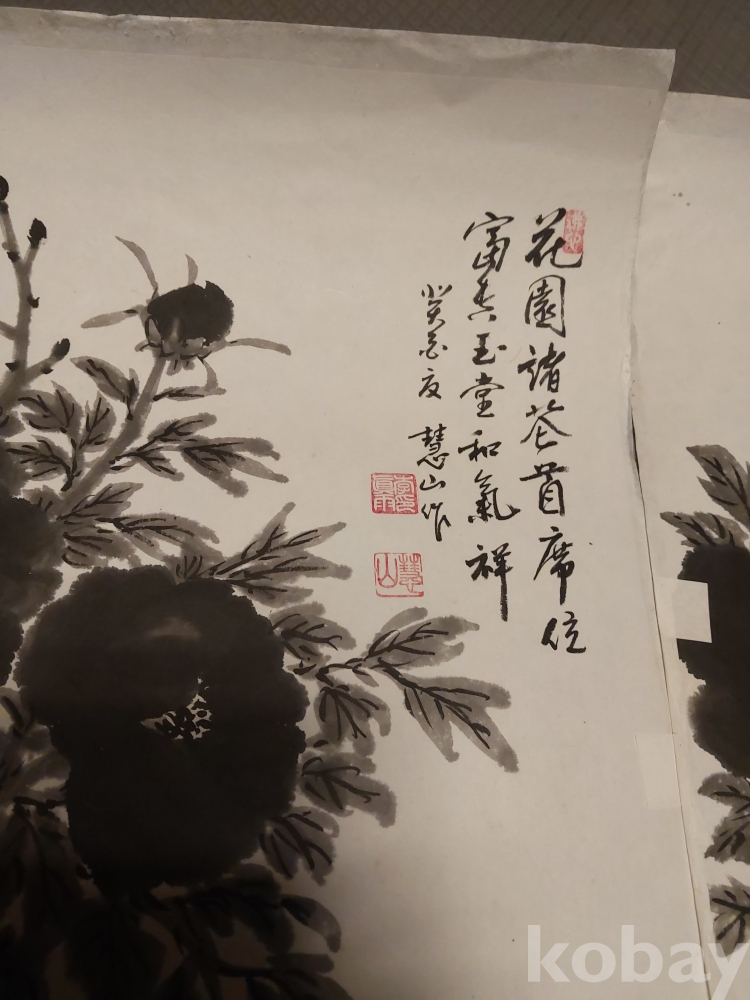 花園諸花首席位
富貴玉堂和氣祥
癸夏 慧山作
慧山
kobay